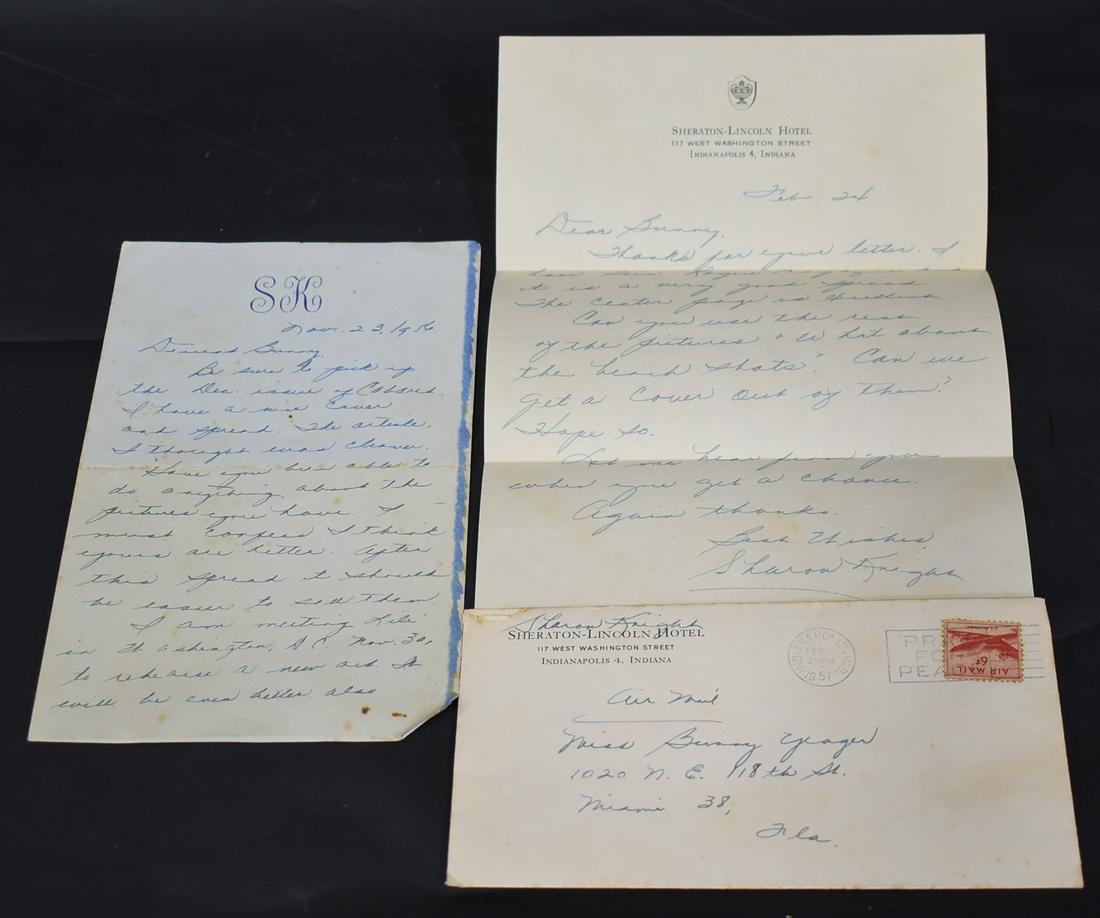 SK
Nov. 23, 1956
Dearest Bunny,
Be sure to pick up
the Dec. issue of Cabaret.
I have a nice cover
and spread. The article,
I thought was clever.
Have you been able to
do anything about the
pictures you have. I
must confess I think
yours are better. After
this spread it should
be easier to sell them.
I am meeting Lili
in Washington, D.C. Nov. 30,
to rehearse a new act. It
will be even better. Also
SHERATON-LINCOLN HOTEL
117 WEST WASHINGTON STREET
INDIANAPOLIS 4, INDIANA
Feb. 24
Dear Bunny,
Thanks for your letter. I
have seen
it is a very good spread
The center page is
Can you use the rest
of the pictures & What about
the beach shots? Can we
get a cover out of them?
Hope so.
Let me hear from you
when you get a chance.
Again thanks.
Best Wishes,
Sharon Knight
Sharon Knight
SHERATON-LINCOLN HOTEL
117 WEST WASHINGTON STREET
INDIANAPOLIS 4, INDIANA
INDIANAPOLIS, IND.
FEB
PM
1957
PR
FO
PEA
AIR MAIL
6¢
Air Mail
Miss Bunny Yeager
1020 N. E. 118th St.
Miami 38,
Fla.